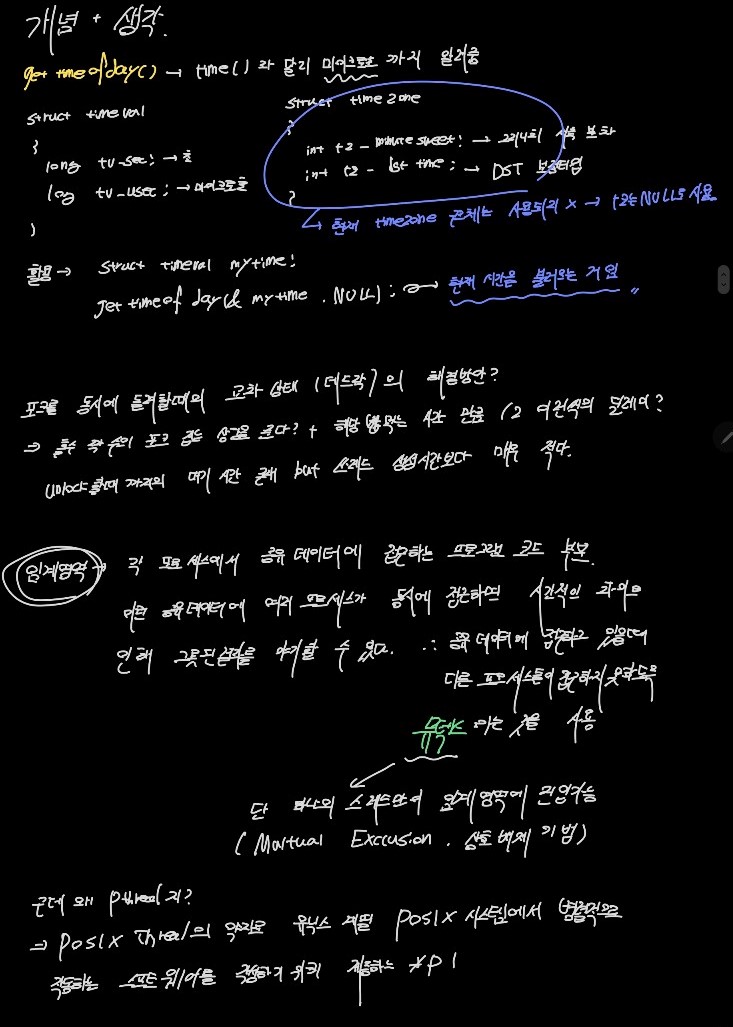 개념 + 생각.
gettimeofday() → time() 와 달리 마이크로초 까지 알려줌
struct timeval
struct timezone
{
{
long tv_sec; → 초
int tz_minutesweet; → 그리니치 서쪽 분차
long tv_usec; → 마이크로초
int tz_dsttime; → DST 보정타입
}
}
↳ 현재 timezone 구조체는 사용되지 X → 는 NULL로 사용.
활용 → struct timeval mytime;
gettimeofday(& mytime, NULL); → 현재 시간을 불러오는 거임
포크를 동시에 들려할때의 교착 상태 (데드락)의 해결방안?
⇒ 홀수 짝수의 포크 잡는 순서를 다? + 해당 는 시간 (2 의 딜레이?
unlock 할때 까지의 대기 시간 존재 but 쓰레드 생성시간보다 매우 적다.
임계영역 → 각 프로세스에서 공유 데이터에 접근하는 프로그램 코드 부분.
어떤 공유데이터에 여러 프로세스가 동시에 접근하면 시간적인 차이로
인해 그릇된 결과를 야기할 수 있다. ∴ 공유데이터에 접근하고 있을때
다른 프로세스들이 접근하지 못하도록
뮤텍스 라는 것을 사용
단 하나의 스레드만이 임계영역에 진입가능
(Martual Exccusion. 상호 배제 기법)
근데 왜 pthread지?
⇒ Posix Thread의 약자로 유닉스 계열 Posix 시스템에서 병렬적으로
작동하는 소프트웨어를 작성하기 위해 제공하는 API